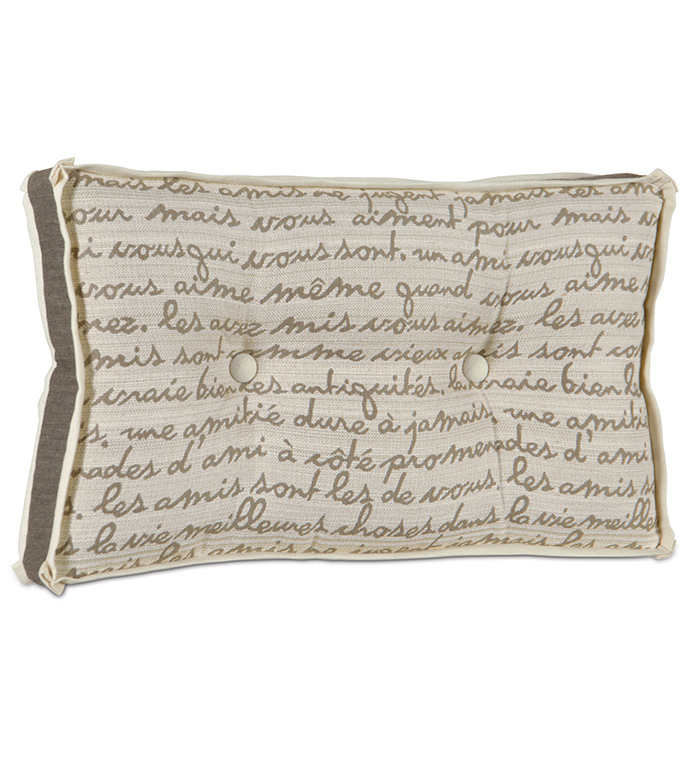 mais les amis ne jugent jamais les ami
pour mais vous aiment pour mais v
ni vous qui vous sont. un ami vous qui vous
vous aime même quand vous aime
mez. les avez mis vous aimez. les avez
mis sont comme vieux amis sont com
vraie bien les antiquités. la vraie bien l
s. une amitié dure à jamais. une amiti
nades d'ami à côté promenades d'ami
. les amis sont les de vous. les amis s
s la vie meilleures choses dans la vie meille
mais les amis ne jugent jamais les amis